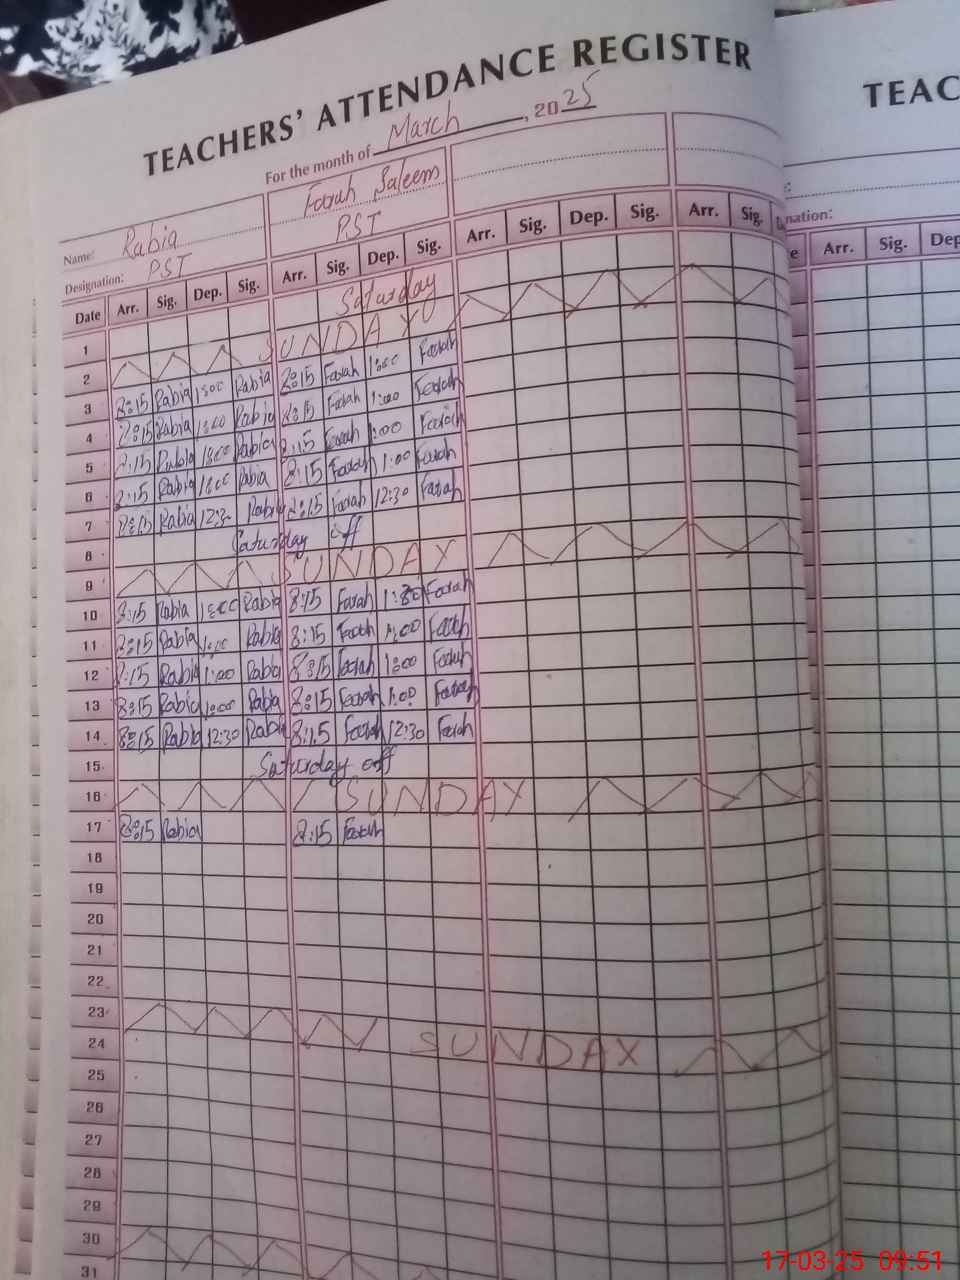 TEACHERS' ATTENDANCE REGISTER
TEAC
For the month of March, 2025
Name: Rabia Farah Saleem
Designation: PST PST nation:
Date Arr. Sig. Dep. Sig. Arr. Sig. Dep. Sig. Arr. Sig. Dep. Sig. Arr. Sig. e Arr. Sig. Dep
1 Saturday
2 SUNDAY
3 8:15 Rabia 1:00 Rabia 8:15 Farah 1:00 Farah
4 8:15 Rabia 1:00 Rabia 8:15 Farah 1:00 Farah
5 8:15 Rabia 1:00 Rabia 8:15 Farah 1:00 Farah
6 8:15 Rabia 1:00 Rabia 8:15 Farah 1:00 Farah
7 8:15 Rabia 12:30 Rabia 8:15 Farah 12:30 Farah
8 Saturday off
9 SUNDAY
10 8:15 Rabia 1:00 Rabia 8:15 Farah Farah
11 8:15 Rabia 1:00 Rabia 8:15 Farah 1:00 Farah
12 8:15 Rabia 1:00 Rabia 8:15 Farah 1:00 Farah
13 8:15 Rabia 1:00 Rabia 8:15 Farah 1:00 Farah
14 8:15 Rabia 12:30 Rabia 8:15 Farah 12:30 Farah
15 Saturday off
16 SUNDAY
17 8:15 Rabia 8:15 Farah
18
19
20
21
22
23
24 SUNDAY
25
26
27
28
29
30
31
17-03-25 09:51